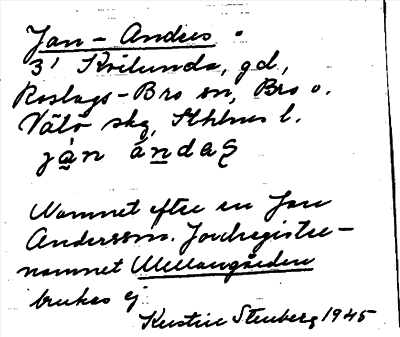 Jan-Anders.
3¹ Kvilunda, gd,
Roslags-Bro sn, Bro o.
Vätö skg, Sthlms l.
jàn ándaʂ
Namnet efter en Jan
Andersson. Jordregister-
namnet Mellangården
brukas ej
Kerstin Stenberg 1945